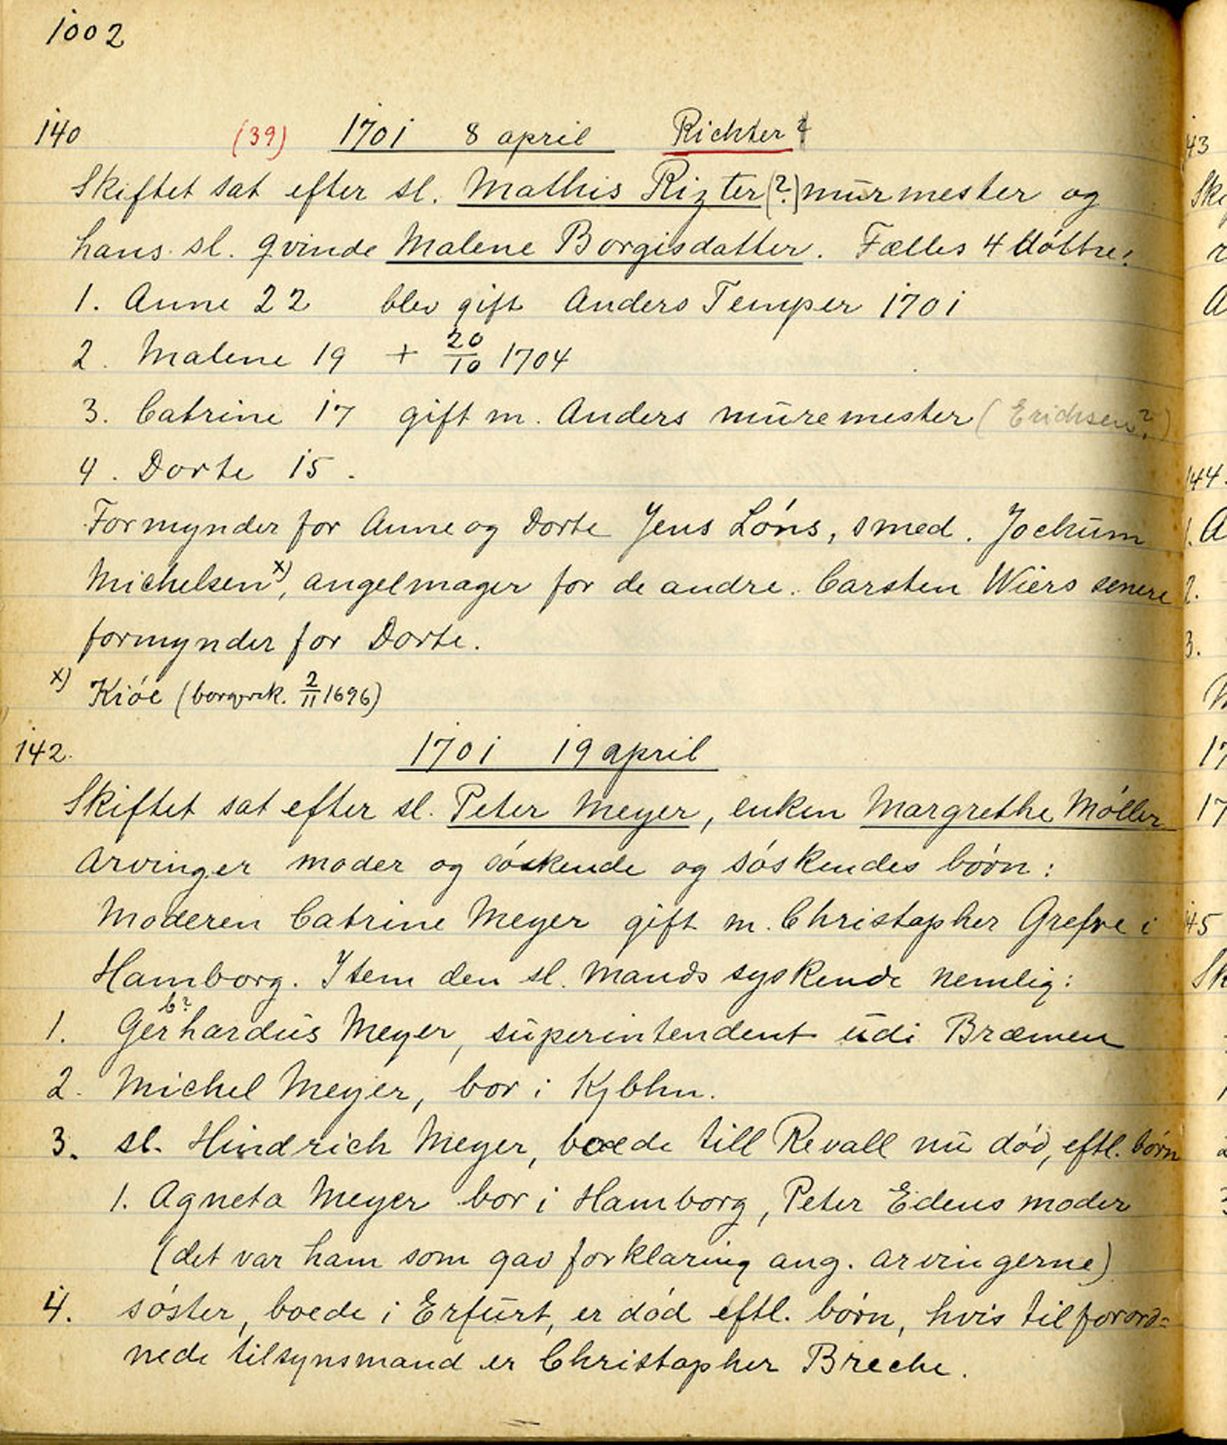 1002
140 (39) 1701 8 april Richter?
Skiftet sat efter sl. Mathis Rizter (?) murmester og
hans sl. qvinde Malene Borgisdatter. Fælles 4 døttre:
1. Anne 22 blev gift Anders Temper 1701
2. Malene 19 + 20/10 1704
3. Catrine 17 gift m. Anders muremester (Erichsen?)
4. Dorte 15.
Formynder for Anne og Dorte Jens Löns, smed. Jochum
Michelsen x), angelmager for de andre. Carsten Wiers senere
formynder for Dorte.
x) Kiöe (borgersk. 2/11 1696)
142. 1701 19 april
Skiftet sat efter sl. Peter Meyer, enken Margrethe Møller
Arvinger moder og söskende og söskendes börn:
Moderen Catrine Meyer gift m. Christopher Grefve i
Hamborg. Item den sl. mands syskende nemlig:
b?
1. Gerhardus Meyer, superintendent udi Bræmen
2. Michel Meyer, bor i Kjbhn.
3. sl. Hindrich Meyer, boede till Revall nu död, eftl. börn
1. Agneta Meyer bor i Hamborg, Peter Edens moder
(det var ham som gav forklaring ang. arvingerne)
4. söster, boede i Erfurt, er död eftl. börn, hvis tilforord=
nede tilsynsmand er Christopher Breche.
43
Ske
A
144.
1. A
2.
3.
17
17
145
Sk